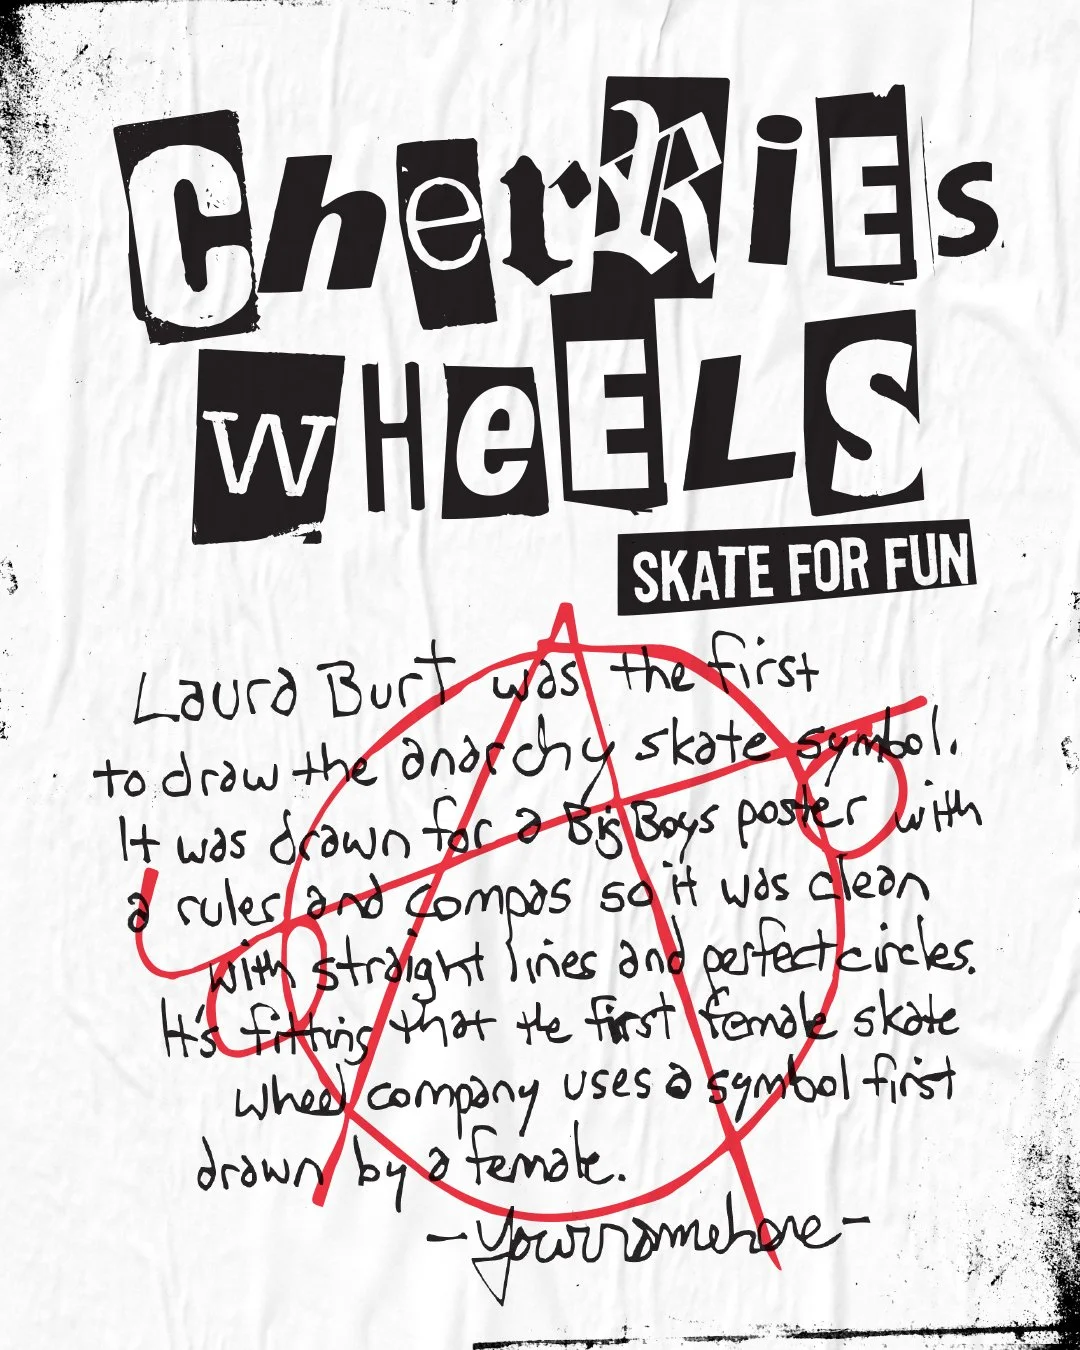 CherRiEs
wHeELS
SKATE FOR FUN
Laura Burt was the first
to draw the anarchy skate symbol.
It was drawn for a Big Boys poster with
a rules and compas so it was clean
with straight lines and perfect circles.
It's fitting that the first female skate
wheel company uses a symbol first
drawn by a female.
-Yournamehere-